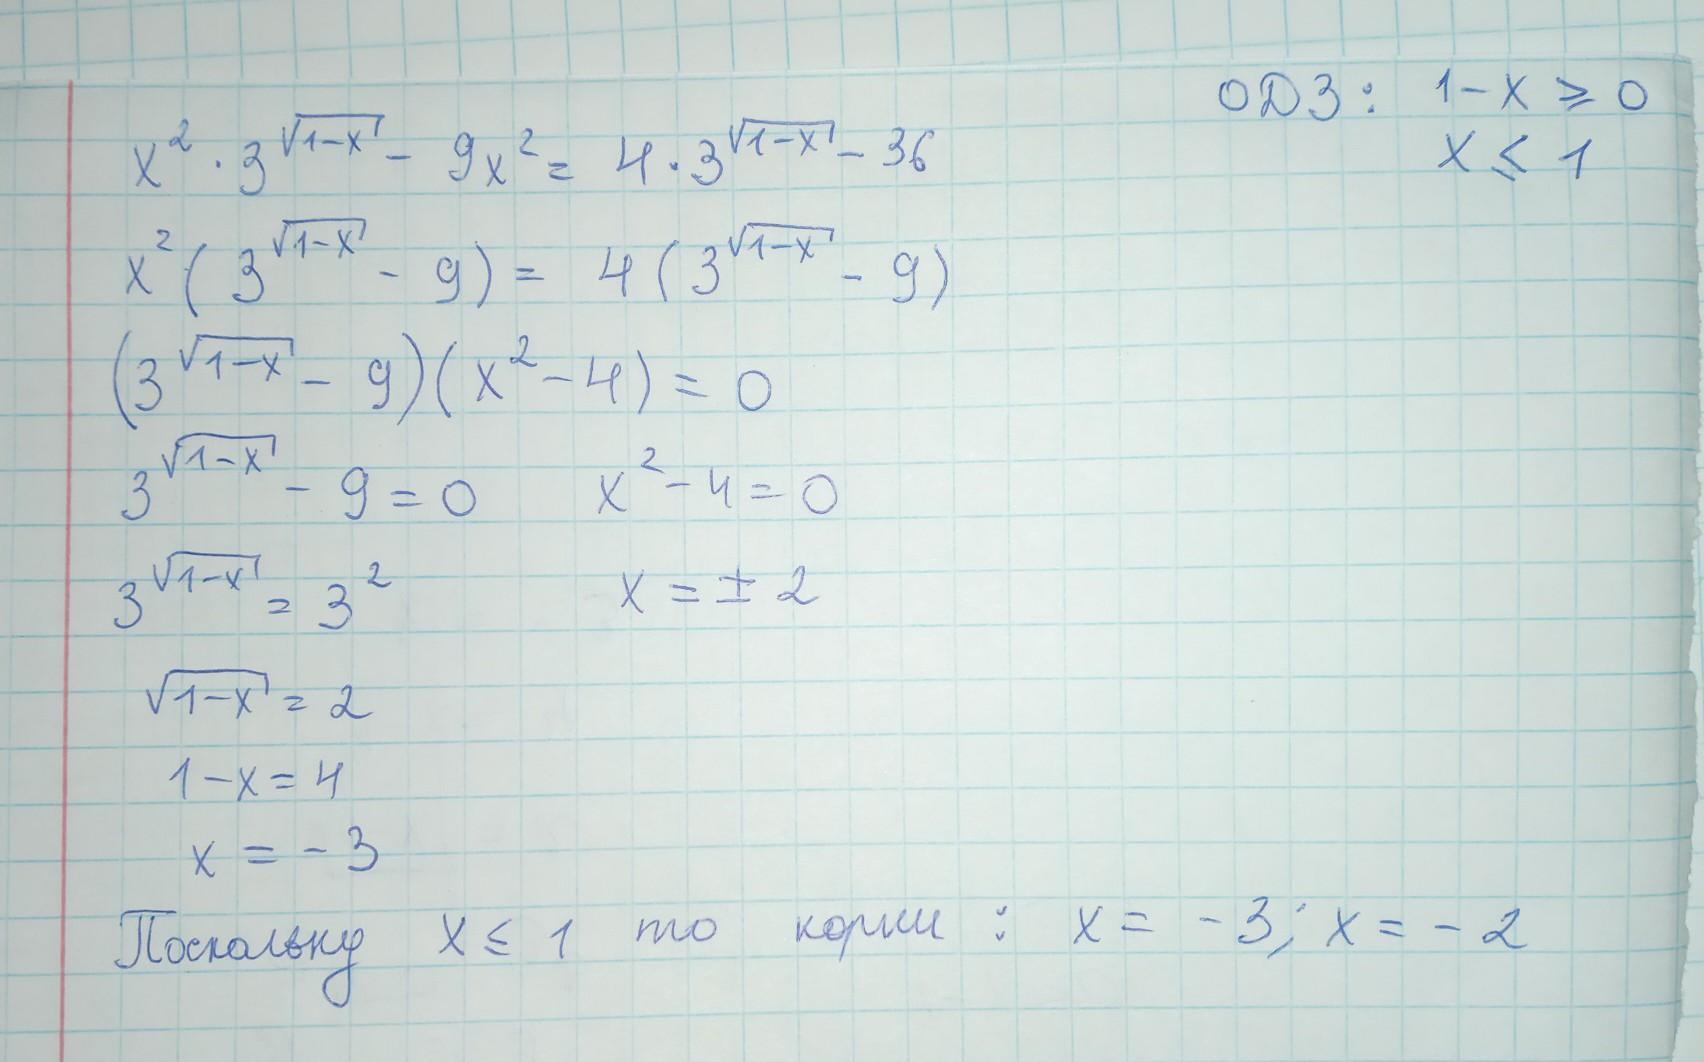 ОДЗ: 1-x ≥ 0
x ≤ 1
x² · 3^√(1-x) - 9x² = 4 · 3^√(1-x) - 36
x²(3^√(1-x) - 9) = 4(3^√(1-x) - 9)
(3^√(1-x) - 9)(x² - 4) = 0
3^√(1-x) - 9 = 0 x² - 4 = 0
3^√(1-x) = 3² x = ± 2
√(1-x) = 2
1-x = 4
x = -3
Поскольку x ≤ 1 то корни : x = -3; x = -2